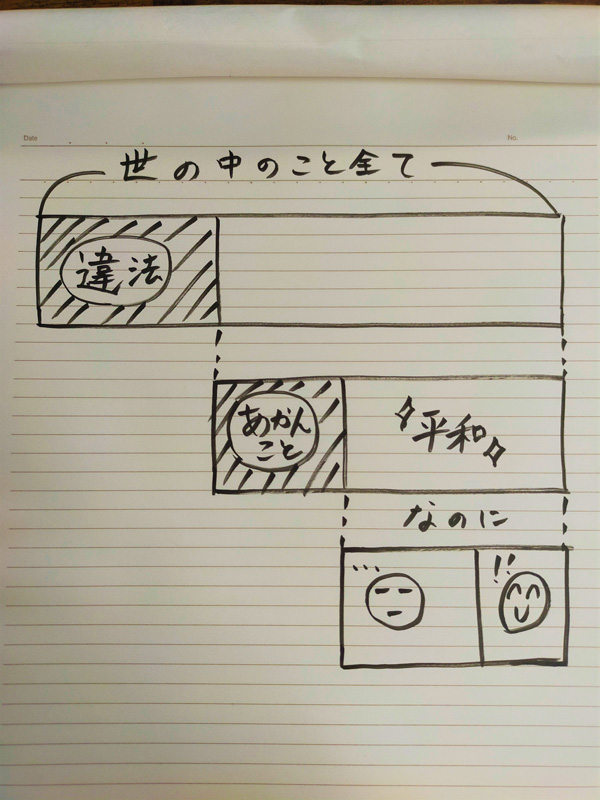 Date
No.
世の中のこと全て
違法
あかん
こと
平和
なのに
...
!!